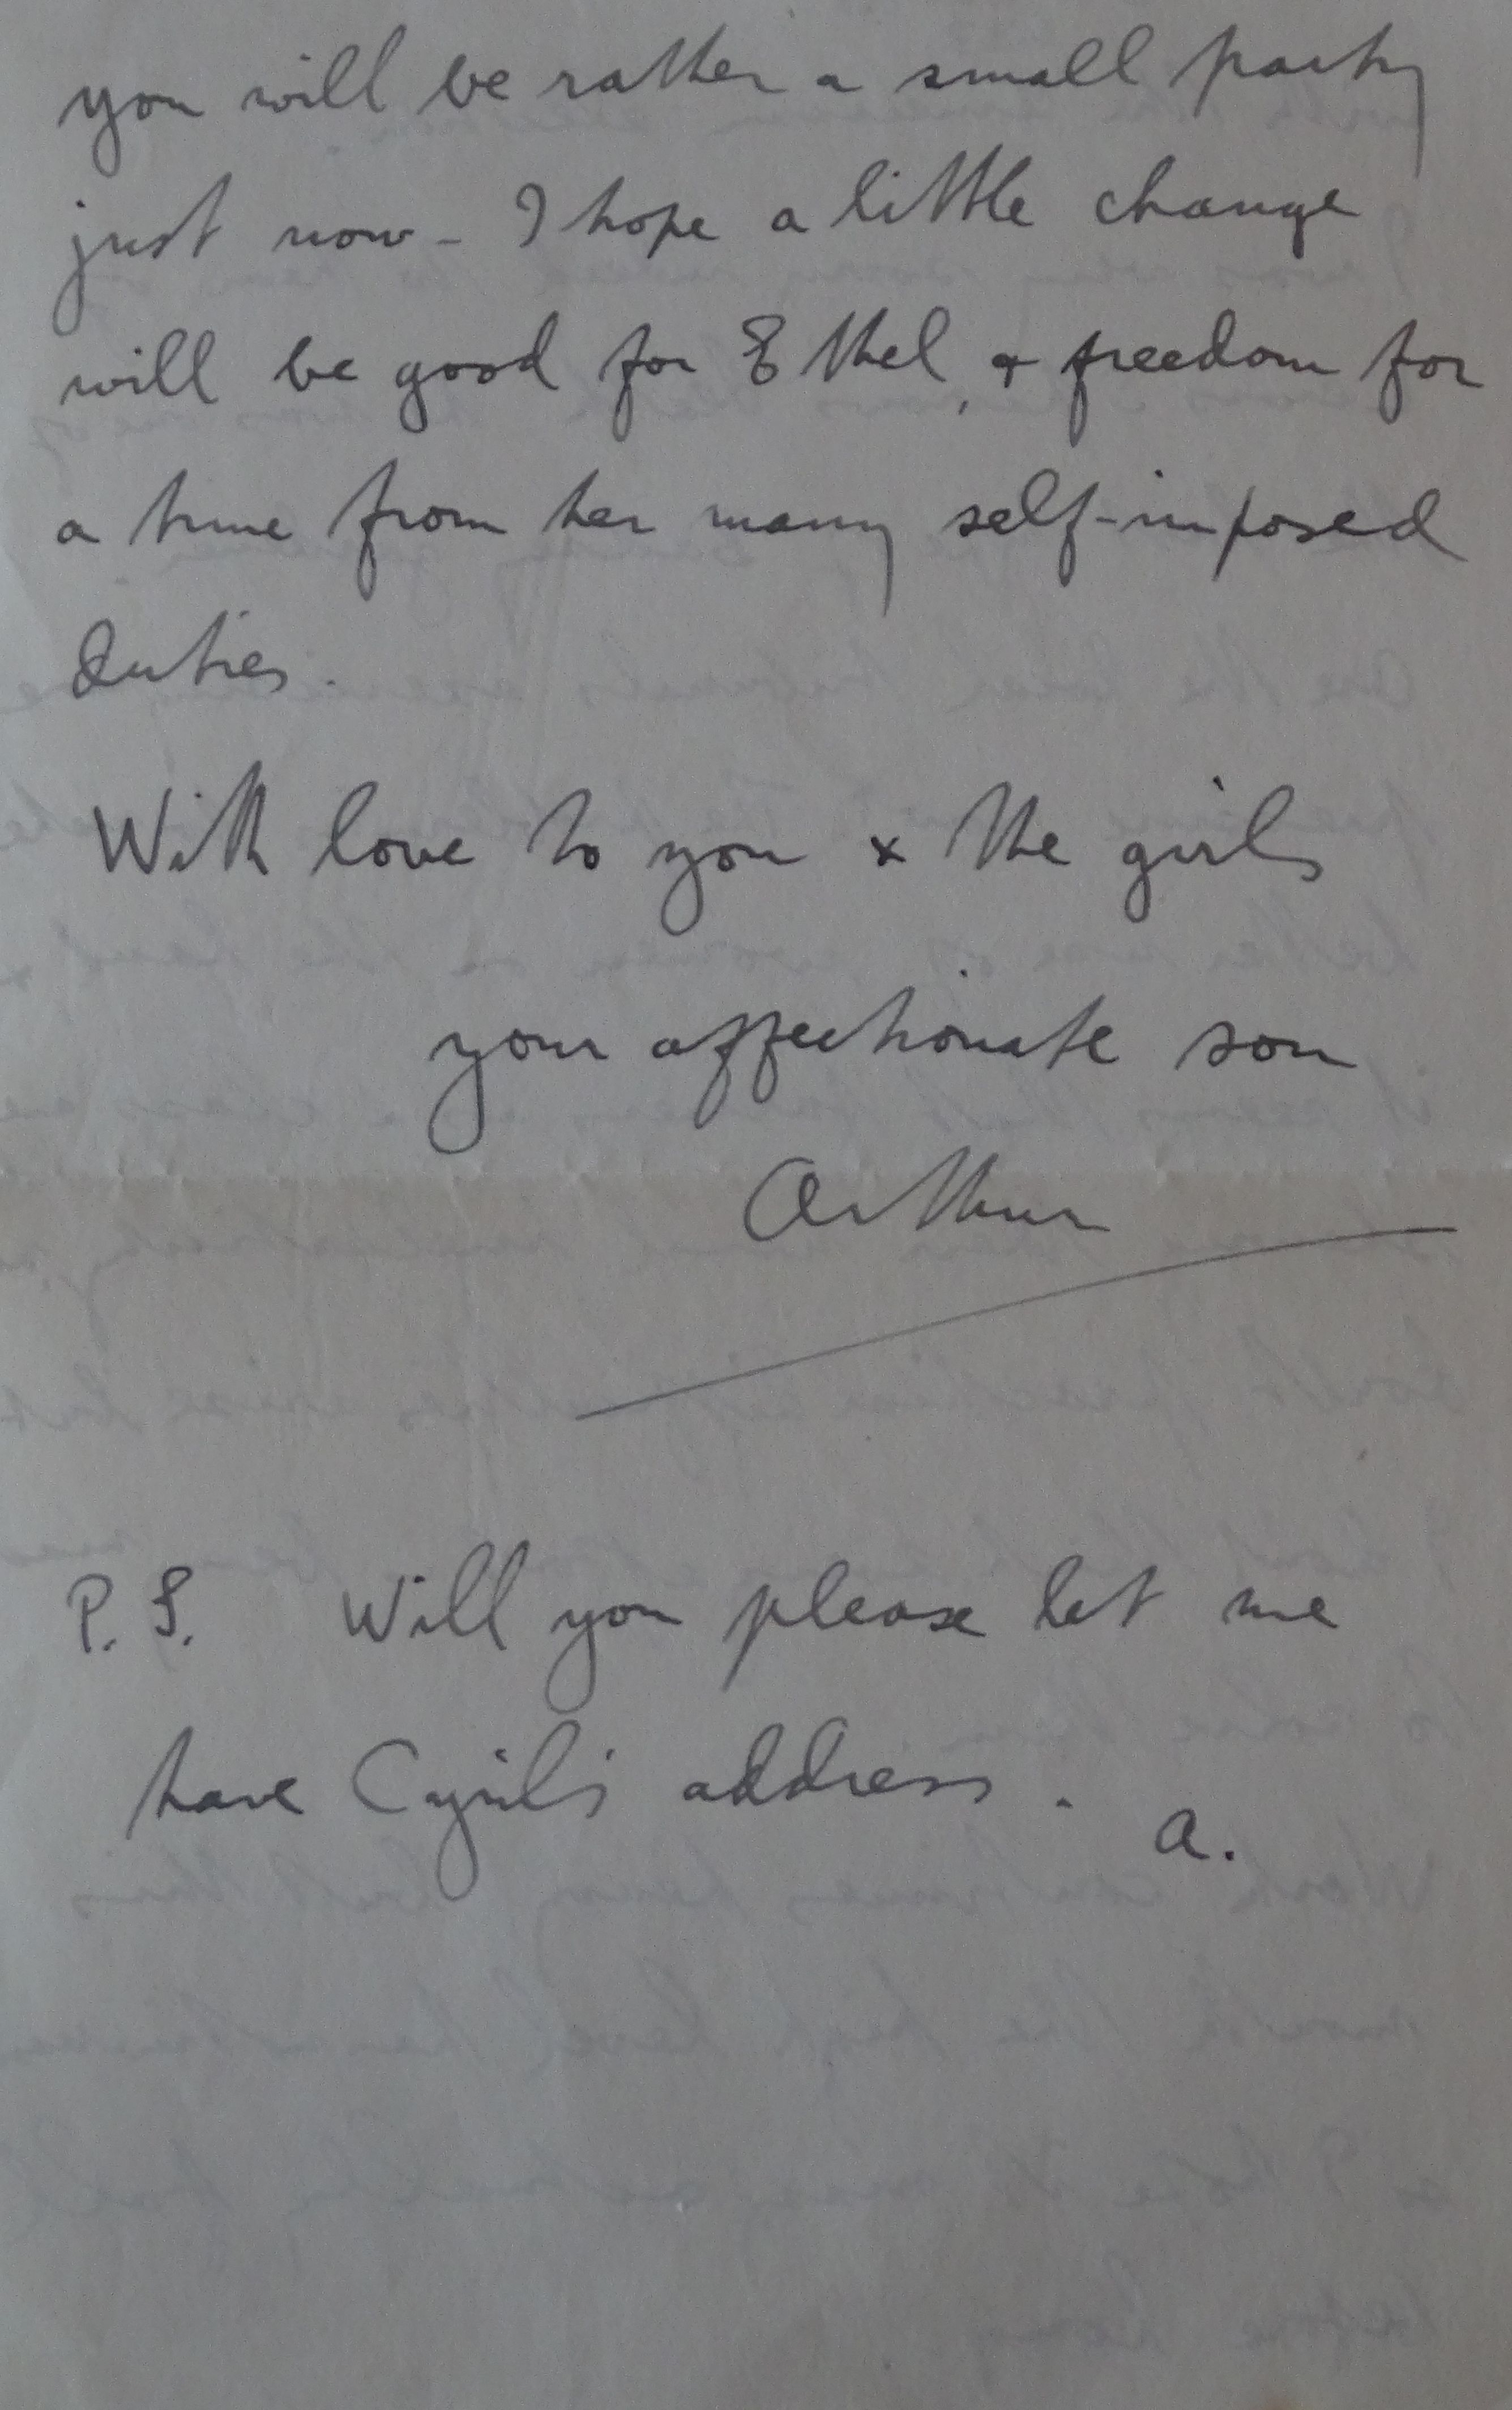 you will be rather a small party
just now - I hope a little change
will be good for Ethel, & freedom for
a time from her many self-imposed
duties.
With love to you & the girls
your affectionate son
Arthur
P.S. Will you please let me
have Cyril's address.
A.